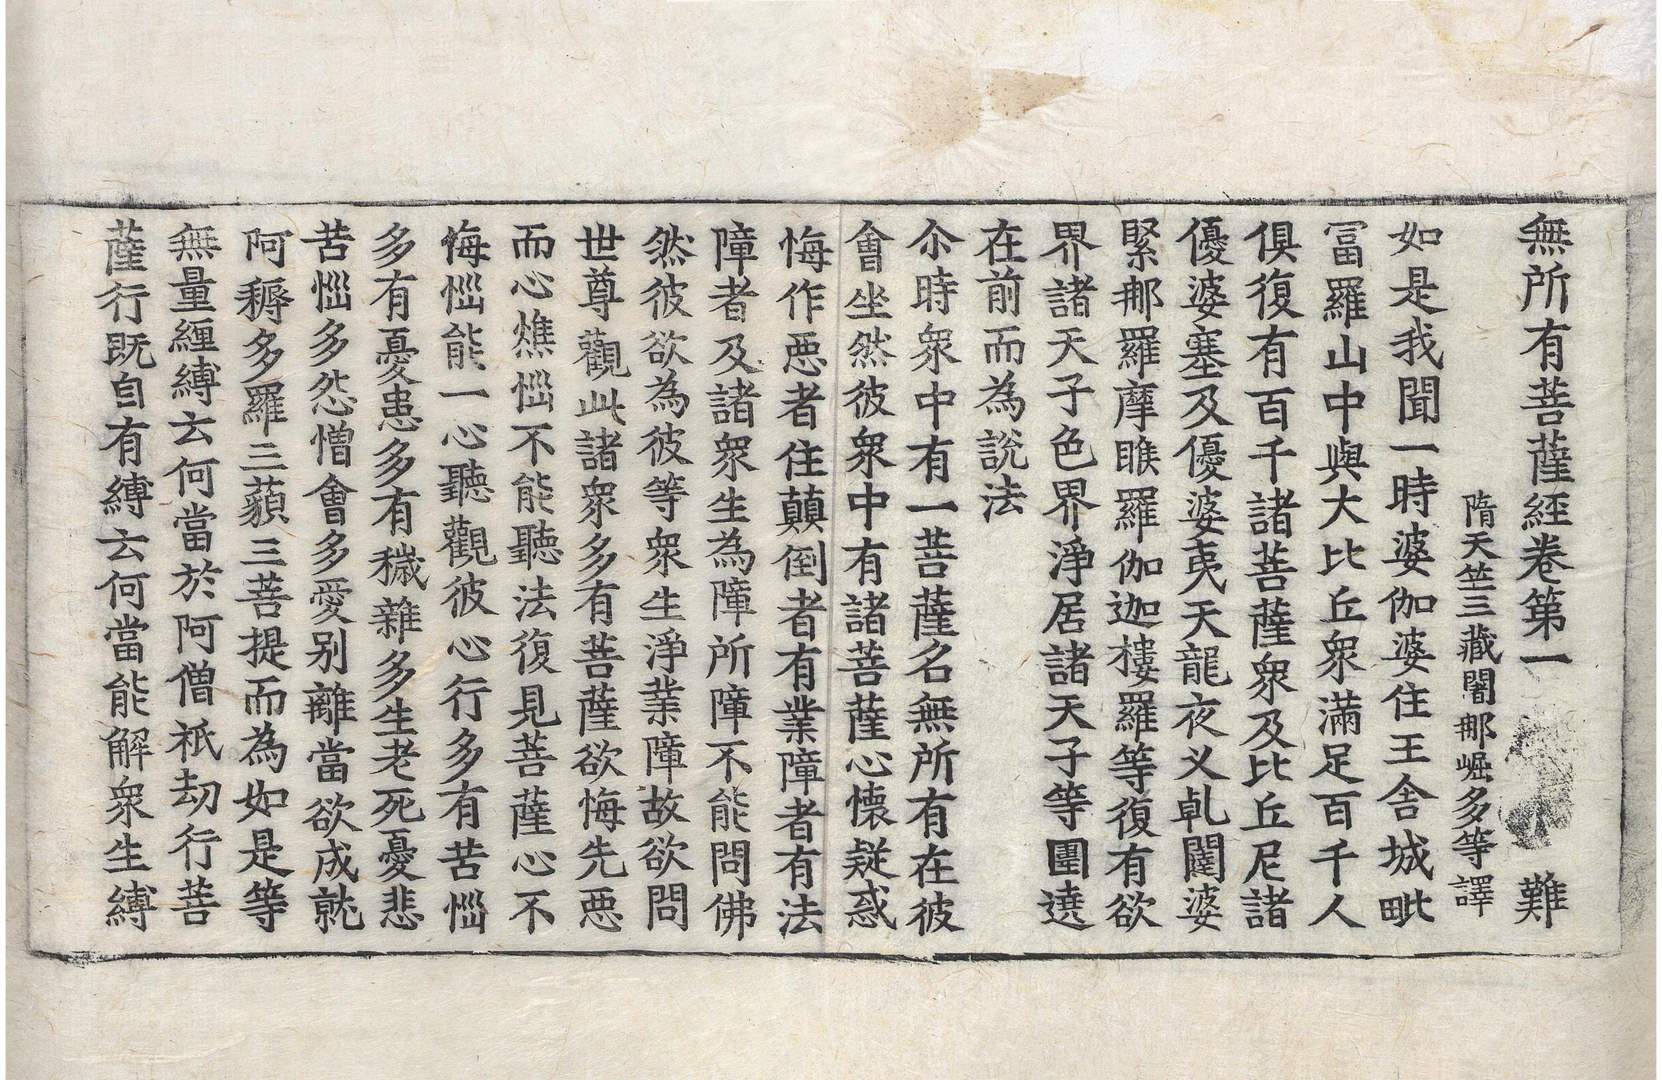 無所有菩薩經卷第一 難
隋天竺三藏闍那崛多等譯
如是我聞一時婆伽婆住王舍城毗
冨羅山中與大比丘衆滿足百千人
俱復有百千諸菩薩衆及比丘尼諸
優婆塞及優婆夷天龍夜义乹闥婆
緊那羅摩睺羅伽迦樓羅等復有欲
界諸天子色界淨居諸天子等圍遶
在前而為說法
尒時衆中有一菩薩名無所有在彼
會坐然彼衆中有諸菩薩心懷疑惑
悔作惡者住顛倒者有業障者有法
障者及諸衆生為障所障不能問佛
然彼欲為彼等衆生淨業障故欲問
世尊觀此諸衆多有菩薩欲悔先惡
而心燋惱不能聽法復見菩薩心不
悔惱能一心聽觀彼心行多有苦惱
多有憂患多有穢雜多生老死憂悲
苦惱多怨憎會多愛别離當欲成就
阿耨多羅三藐三菩提而為如是等
無量纏縛云何當於阿僧祇劫行菩
薩行既自有縛云何當能解衆生縛